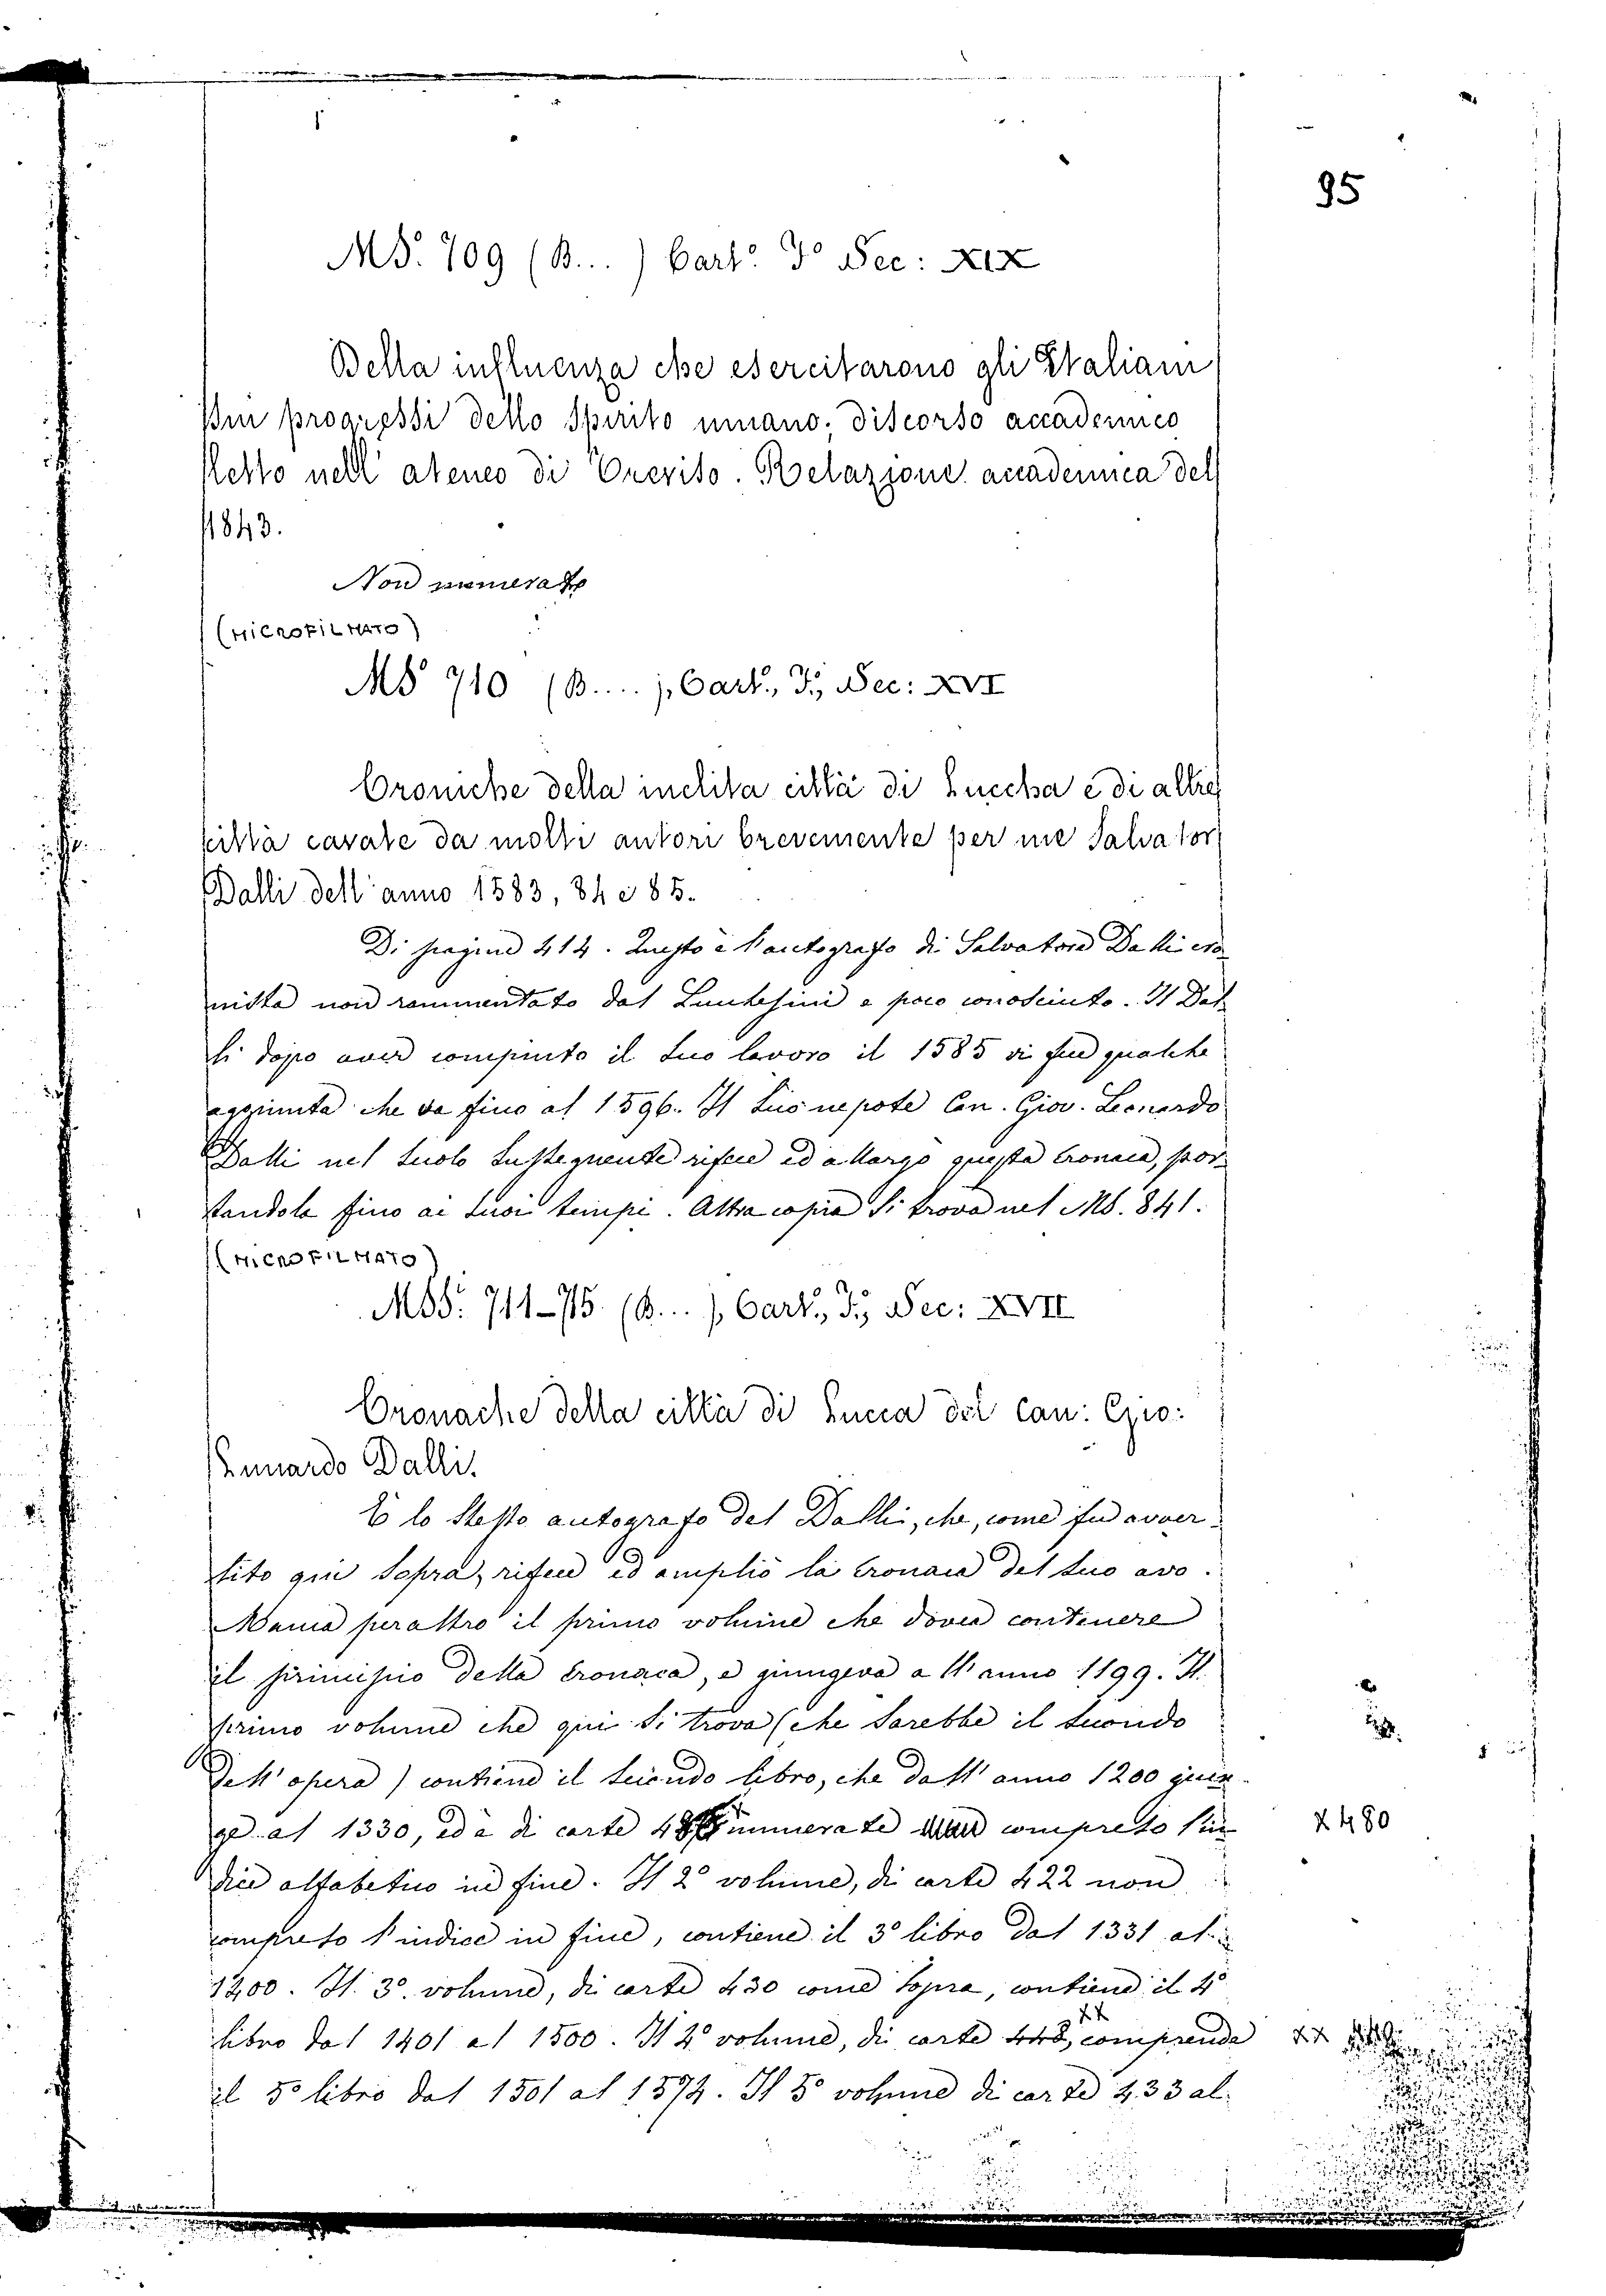 95
MS. 709 (B...) Cart.º Iº Sec: XIX
Della influenza che esercitarono gli Italiani
sui progressi dello Spirito umano; discorso accademico
letto nell' ateneo di Treviso. Relazione accademica del
1843.
Non numerato
(MICROFILMATO)
MS 710 (B....), Cart., I., Sec: XVI
Croniche della inclita città di Luccha e di altre
città cavate da molti autori brevemente per me Salvator
Dalli dell' anno 1583, 84 e 85.
Di pagine 414. Questo è l'autografo di Salvatore Dalli cro
nista non rammentato dal Lucchesini e poco conosciuto. Il Dal
li dopo aver compiuto il suo lavoro il 1585 vi fece qualche
aggiunta che va fino al 1596. Il suo nepote Can. Giov. Leonardo
Dalli nel secolo susseguente rifece ed allargò questa cronaca, por
tandola fino ai suoi tempi. Altra copia si trova nel MS. 841.
(MICROFILMATO)
MSS. 711-15. (B...), Cart., I., Sec: XVII
Cronache della città di Lucca del Can: Gio:
Lunardo Dalli.
È lo stesso autografo del Dalli, che, come fu avver
tito qui sopra, rifece ed ampliò la cronaca del suo avo.
Manca peraltro il primo volume che dovea contenere
il principio della cronaca, e giungeva all'anno 1199. Il
primo volume che qui si trova (che sarebbe il secondo
dell'opera) contiene il secondo libro, che dall'anno 1200 giun
ge al 1330, ed è di carte numerate compreso l'in
X 480
dice alfabetico in fine. Il 2º volume, di carte 422 non
compreso l'indice in fine, contiene il 3º libro dal 1331 al
1400. Il 3º. volume, di carte 430 come sopra, contiene il 4º
libro dal 1401 al 1500. Il 4º volume, di carte 448, comprende
XX
il 5º libro dal 1501 al 1574. Il 5º volume di carte 433 al